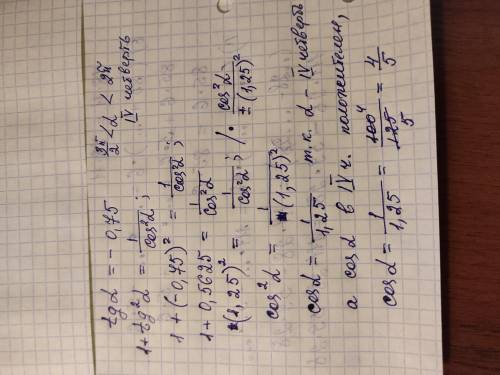 tgα = -0,75   3π/2 < α < 2π
IV четверть
1 + tg²α = 1/cos²α ;
1 + (-0,75)² = 1/cos²α ;
1 + 0,5625 = 1/cos²α
(1,25)² = 1/cos²α ; / · cos²α/(1,25)²
cos²α = 1/(1,25)²
cosα = 1/1,25 т.к. α - IV четверть
а cosα в IV ч. положителен,
cosα = 1/1,25 = 100/125 = 4/5